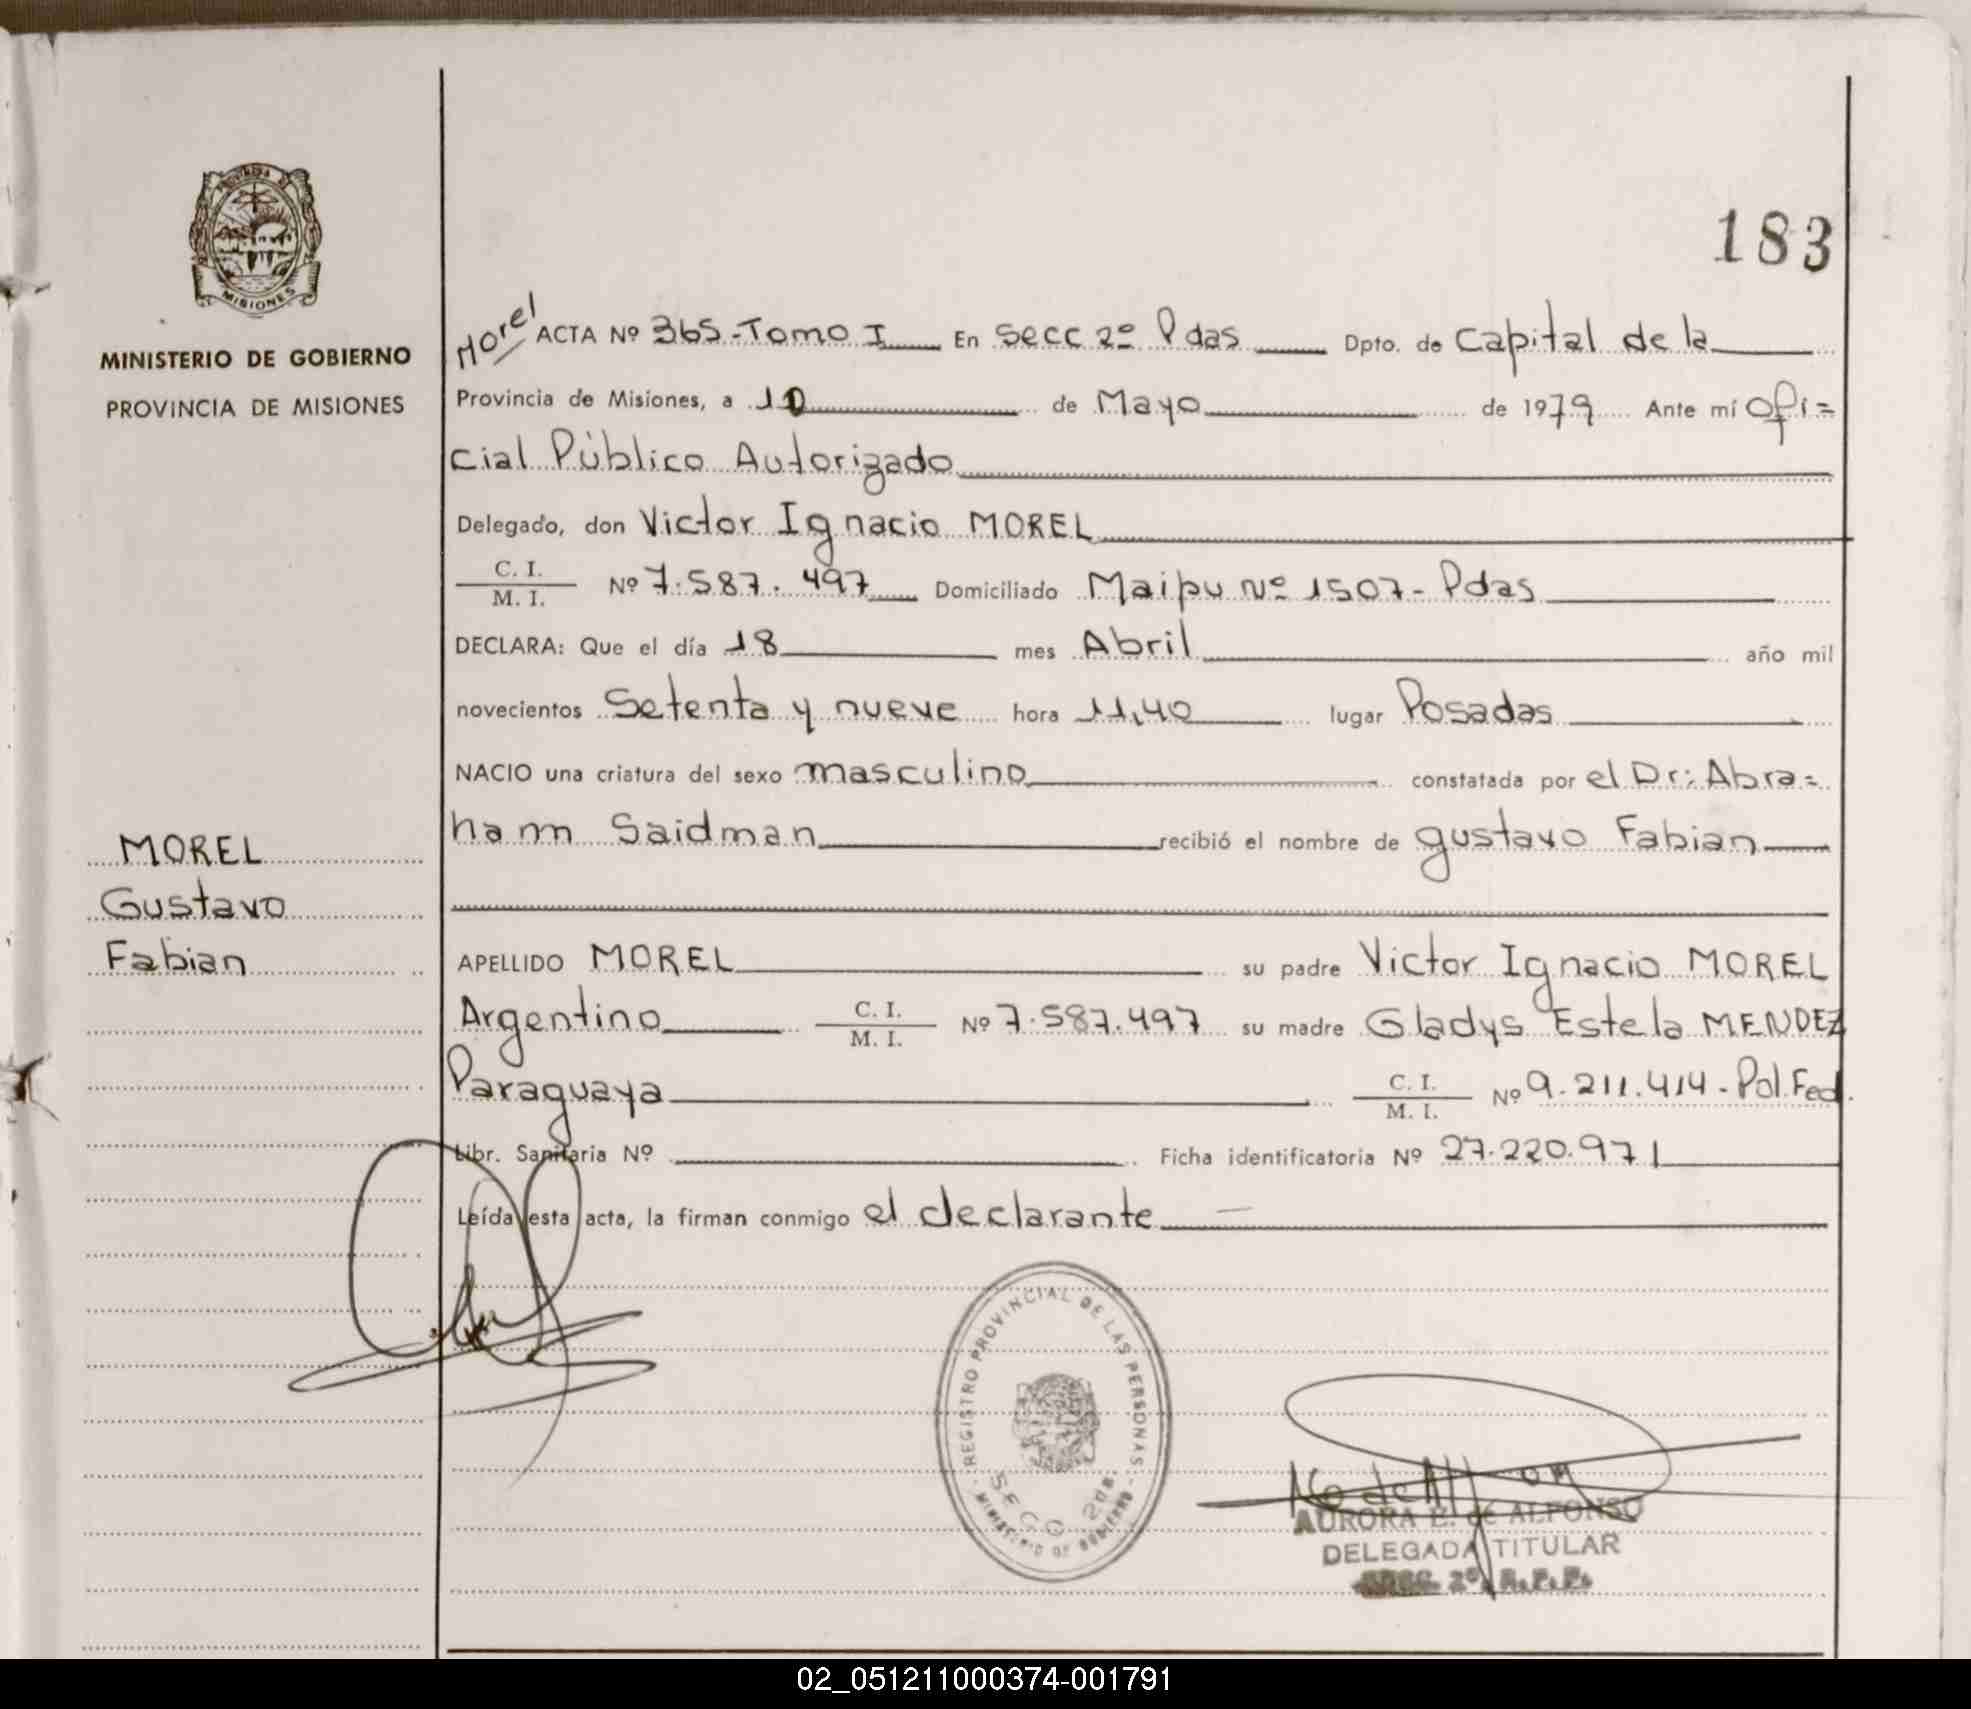 183
PROVINCIA DE
MISIONES
MINISTERIO DE GOBIERNO
PROVINCIA DE MISIONES
MOREL
Gustavo
Fabian
Morel ACTA Nº 365-Tomo I En Secc 2º Pdas Dpto. de Capital de la
Provincia de Misiones, a 10 de Mayo de 1979 Ante mí Ofi=
cial Público Autorizado
Delegado, don Victor Ignacio MOREL
C. I.
M. I. Nº 7.587.497 Domiciliado Maipu Nº 1507- Pdas
DECLARA: Que el día 18 mes Abril año mil
novecientos Setenta y nueve hora 11,40 lugar Posadas
NACIO una criatura del sexo masculino constatada por el Dr: Abra=
ham Saidman recibió el nombre de gustavo Fabian
APELLIDO MOREL su padre Victor Ignacio MOREL
Argentino C. I.
M. I. Nº 7.587.497 su madre Gladys Estela MENDEZ
Paraguaya C. I.
M. I. Nº 9.211.414-Pol.Fed.
Libr. Sanitaria Nº Ficha identificatoria Nº 27.220.971
Leída esta acta, la firman conmigo el declarante
REGISTRO PROVINCIAL DE LAS PERSONAS
SECC 2DA.
MINISTERIO DE GOBIERNO
AURORA E. de ALFONSO
DELEGADA TITULAR
SECC. 2º R.P.P.
02_051211000374-001791